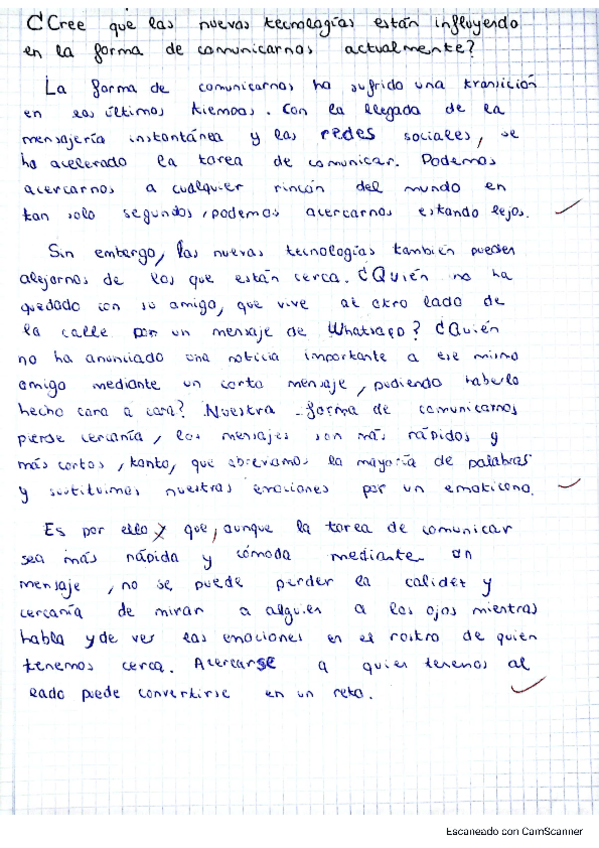 ¿Cree que las nuevas tecnologías están influyendo
en la forma de comunicarnos actualmente?
La forma de comunicarnos ha sufrido una transición
en los últimos tiempos. Con la llegada de la
mensajería instantánea y las redes sociales, se
ha acelerado la tarea de comunicar. Podemos
acercarnos a cualquier rincón del mundo en
tan solo segundos, podemos acercarnos estando lejos.
Sin embargo, las nuevas tecnologías también pueden
alejarnos de los que están cerca. ¿Quién no ha
quedado con su amigo, que vive al otro lado de
la calle por un mensaje de Whatsapp? ¿Quién
no ha anunciado una noticia importante a ese mismo
amigo mediante un corto mensaje, pudiendo haberlo
hecho cara a cara? Nuestra forma de comunicarnos
pierde cercanía, los mensajes son más rápidos y
más cortos, tanto, que abreviamos la mayoría de palabras
y sustituimos nuestras emociones por un emoticono.
Es por ello y que, aunque la tarea de comunicar
sea más rápida y cómoda mediante un
mensaje, no se puede perder la calidez y
cercanía de mirar a alguien a los ojos mientras
habla y de ver las emociones en el rostro de quien
tenemos cerca. Acercarse a quien tenemos al
lado puede convertirse en un reto.
Escaneado con CamScanner